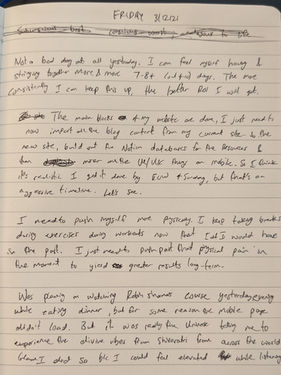 FRIDAY 3/12/21
Not a bad day at all yesterday. I can feel myself having &
stringing together more & more 7-8+ (out of 10) days. The more
consistently I can keep this up, the better ROI I will get.
The main blocks of my website are done, I just need to
now import all the blog content from my current site to the
new site, build out the Notion databases for the Resources &
then more on the UI/UX things on mobile. So I think
it's realistic I get it done by EOW & Sunday, but that's an
aggressive timeline. Let's see.
I need to push myself more physically. I keep taking breaks
during exercises during workouts now that I would have
in the past. I just need to push past that physical pain in
the moment to yield greater results long-term.
Was planning on watching Robin Sharma's course yesterday evening
while eating dinner, but for some reason the mobile page
didn't load. But it was really the universe telling me to
experience the divine vibes from Shivratri from across the world
I did so b/c I could feel elevated while listening